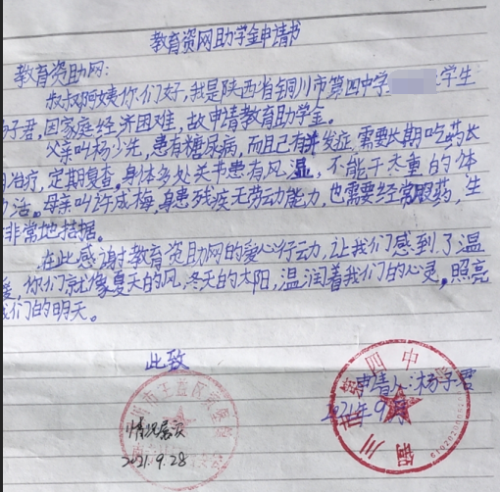 教育资网助学金申请书
教育资助网：
叔叔阿姨你们好，我是陕西省铜川市第四中学 学生
子君，因家庭经济困难，故申请教育助学金。
父亲叫杨少先，患有糖尿病，而且已有并发症，需要长期吃药长
治疗，定期复查。身体多处关节患有风湿，不能干太重的体
活。母亲叫许成梅，身患残疾无劳动能力，也需要经常服药，生
非常地拮据。
在此感谢教育资助网的爱心行动，让我们感到了温
暖，你们就像夏天的风，冬天的太阳，温润着我们的心灵，照亮
我们的明天。
此致
申请人：杨子君
2021年9月
情况属实
2021.9.28
铜川市第四中
川市王益区